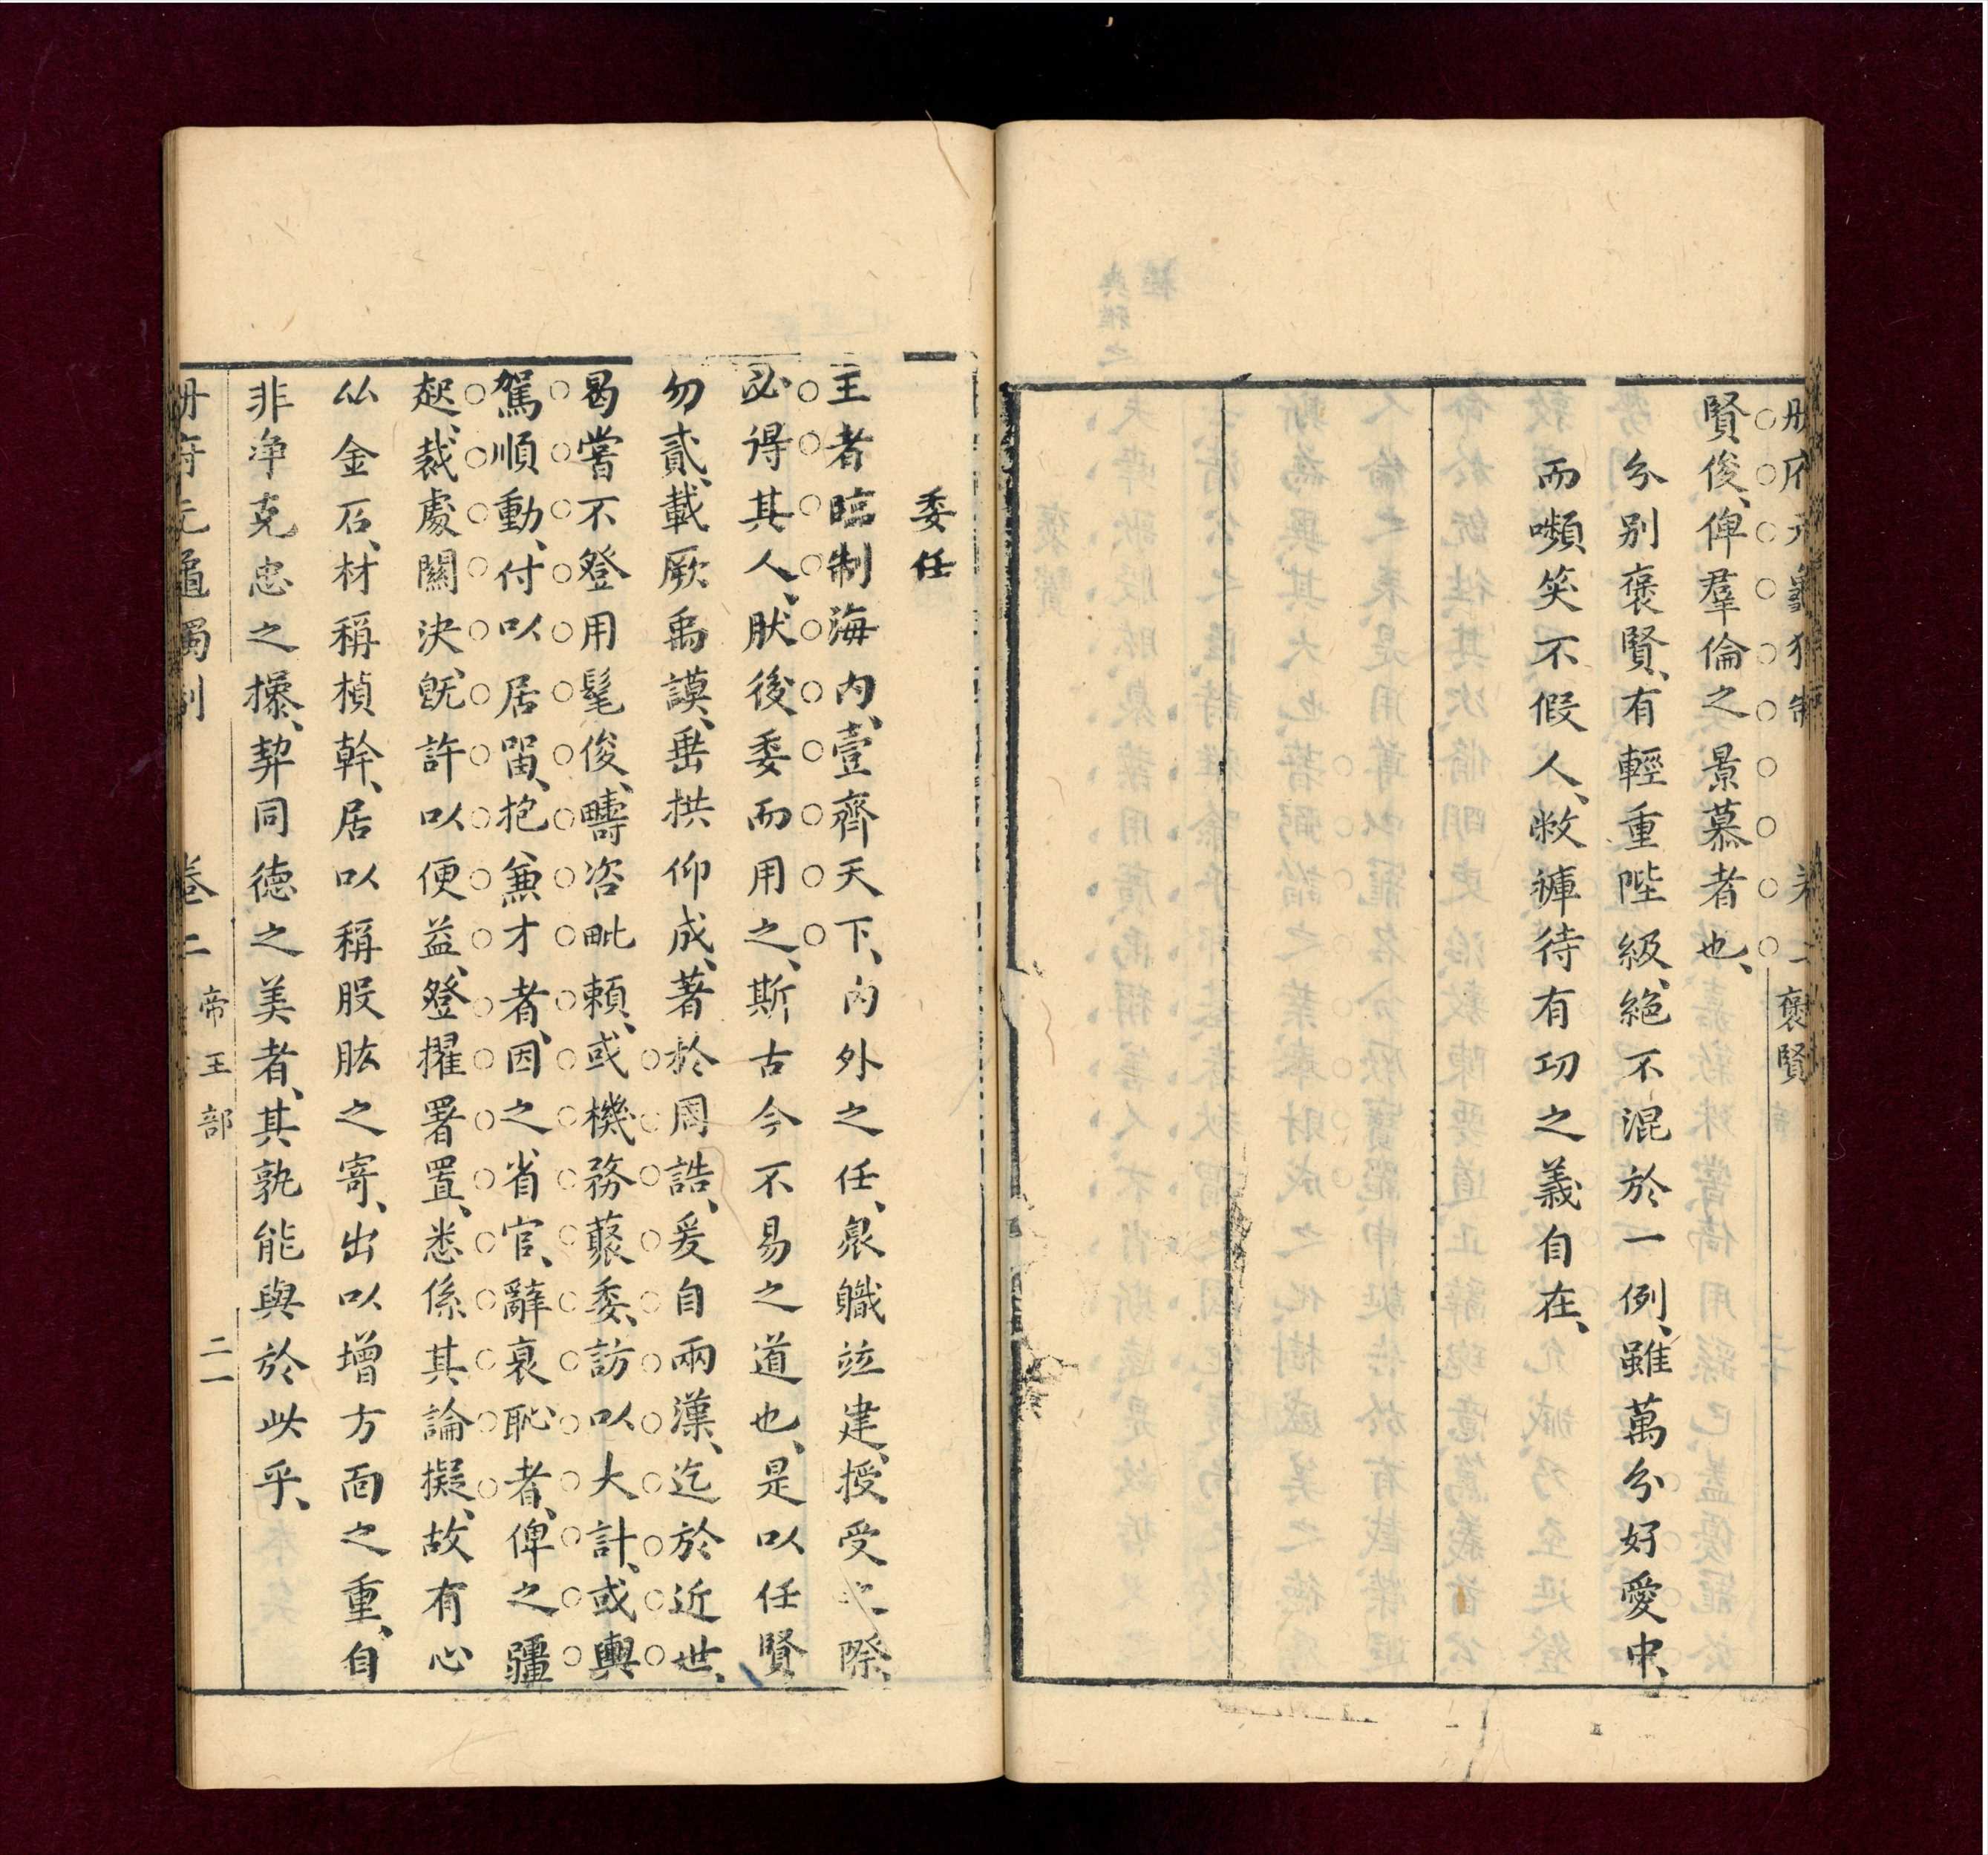 册府元龜獨制 卷二 褒賢
賢俊、俾羣倫之景慕者也、
分别褒賢、有輕重陛級、絕不混於一例、雖萬分好愛中、
而嚬笑不假人、敝褲待有功之義自在、
委任
王者臨制海内、壹齊天下、内外之任、㒫職竝建、授受之際、
必得其人、肰後委而用之、斯古今不易之道也、是以任賢
勿貳、載厥禹謨、垂拱仰成、著於周誥、爰自兩漢、迄於近世、
曷嘗不登用髦俊、疇咨毗賴、或機務藂委、訪以大計、或輿
駕順動、付以居畱、抱兼才者、因之省官、辭裒恥者、俾之疆
起、裁處關決、旣許以便益、登擢署置、悉係其論擬、故有心
从金石、材稱楨幹、居以稱股肱之寄、出以增方面之重、自
非净克忠之操、契同德之美者、其孰能與於此乎、
册府元龜獨制 卷二 帝王部 二一